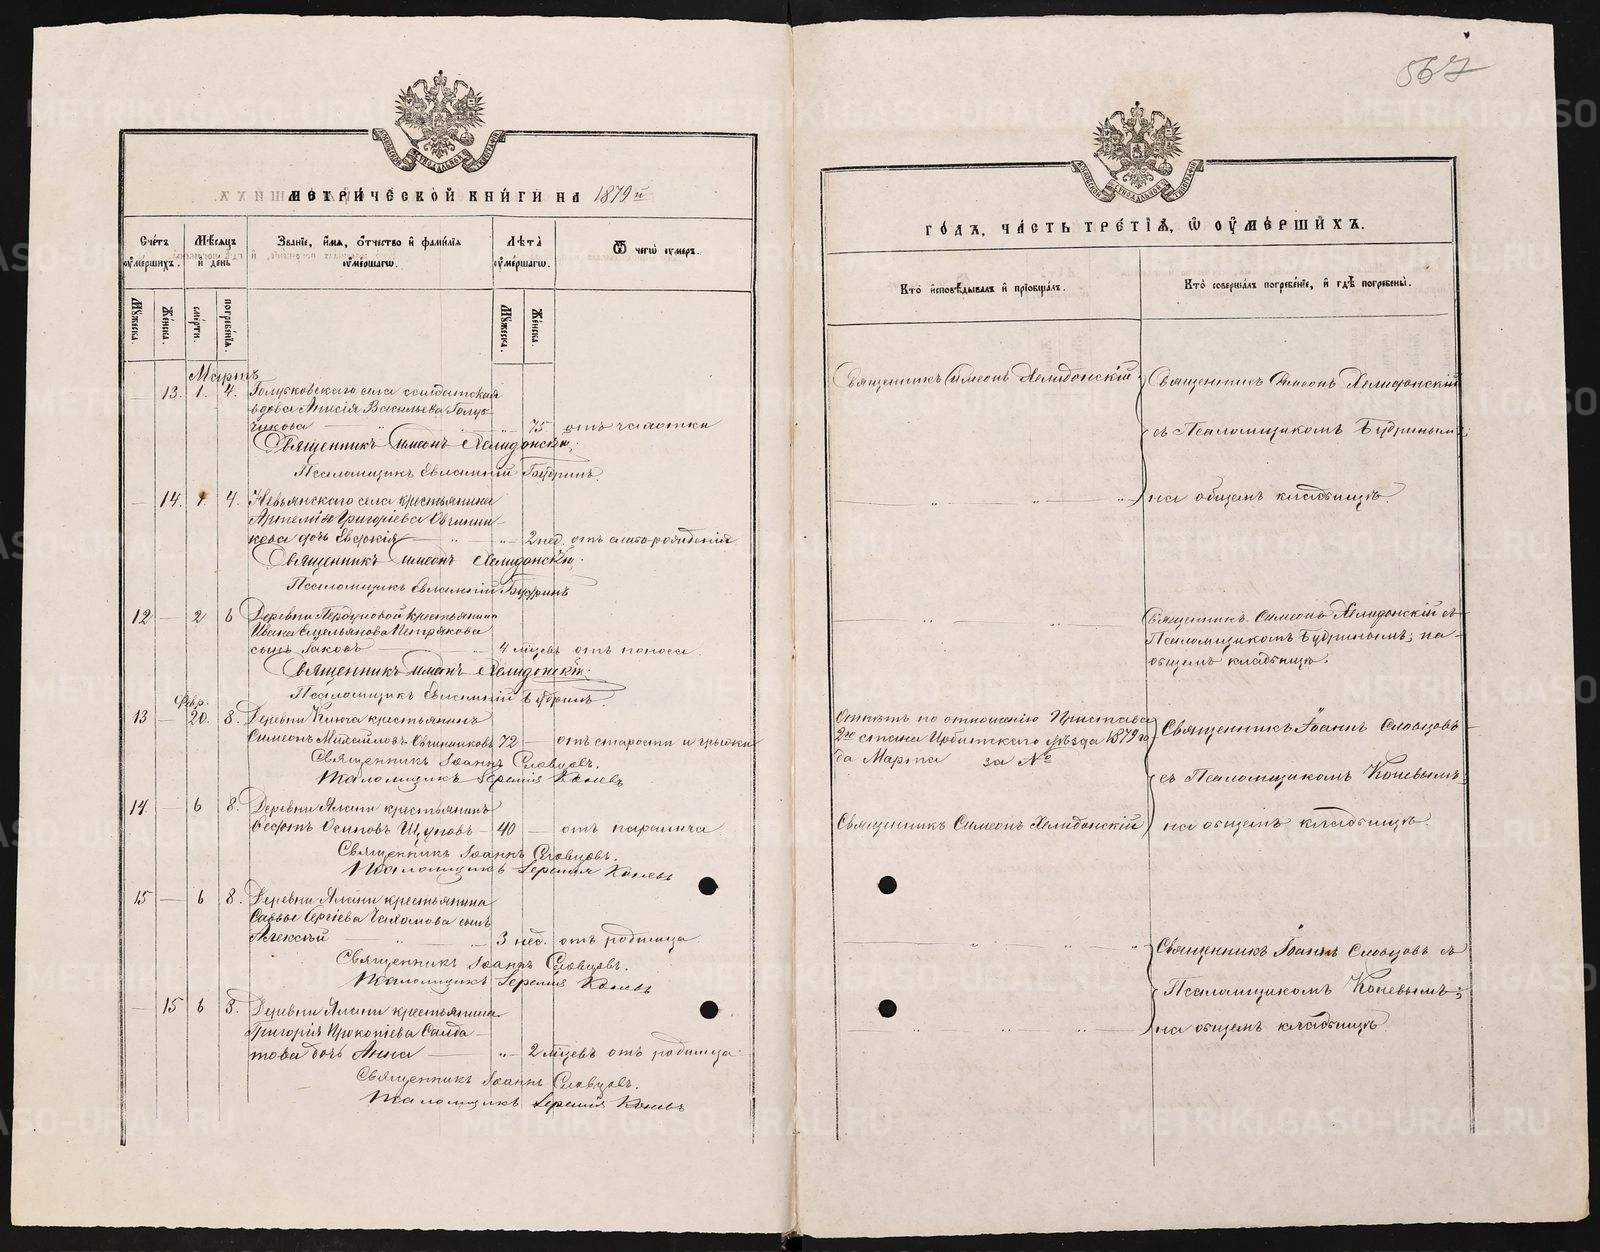 567
МЕТРИЧЕСКОЙ КНИГИ НА 1879й
Счетъ умершихъ.
Мѣсяцъ и день
Званіе, имя, отчество и фамилія умершаго.
Лѣта умершаго.
Отъ чего умеръ.
Мужеска.
Женска.
смерти.
погребенія.
Мужеска.
Женска.
Мартъ
13. 1. 4. Голубковскаго села солдатская
вдова Анисія Васильева Голуб-
чикова 75 отъ чахотки
Священникъ Симеонъ Хелидонскій.
Псаломщикъ Евлампій Бубринъ.
14. 1. 4. Невьянскаго села крестьянина
Артемія Григоріева Овчинни-
кова дочь Евдокія 2 нед. отъ слаборожденія
Священникъ Симеонъ Хелидонскій.
Псаломщикъ Евлампій Бубринъ
12 — 2 6 Деревни крестьянина
Ивана Емельянова Метрякова
сынъ Іаковъ 4 мцевъ отъ поноса.
Священникъ Симеонъ Хелидонскій.
Псаломщикъ Евлампій Бубринъ.
Февр.
13 — 20. 8. Деревни Ключа крестьянинъ
Симеонъ Михайловъ Овчинниковъ 72 — отъ старости и грыжи
Священникъ Іоаннъ Словцовъ.
Псаломщикъ Іеремія Коневъ
14 — 6 8. Деревни Ялани крестьянинъ
Осиповъ Щуповъ — 40 — отъ паралича
Священникъ Іоаннъ Словцовъ.
Псаломщикъ Іеремія Коневъ
15 — 6 8. Деревни Ялани крестьянина
Саввы Сергіева сынъ
Алексѣй 3 нед. отъ родимца
Священникъ Іоаннъ Словцовъ.
Псаломщикъ Іеремія Коневъ
— 15 6 8. Деревни Ялани крестьянина
Григорія Прокопіева Салда-
това дочь Анна — 2 мцевъ отъ родимца
Священникъ Іоаннъ Словцовъ.
Псаломщикъ Іеремія Коневъ
ГОДЪ, ЧАСТЬ ТРЕТІЯ, О УМЕРШИХЪ.
Кто исповѣдывалъ и пріобщалъ.
Кто совершалъ погребеніе, и гдѣ погребены.
Священникъ Симеонъ Хелидонскій
Священникъ Симеонъ Хелидонскій
съ Псаломщикомъ Бубринымъ
на общемъ кладбищѣ.
Священникъ Симеонъ Хелидонскій съ
Псаломщикомъ Бубринымъ; на
общемъ кладбищѣ.
Отпѣтъ по отношенію Пристава
2го стана Ирбитскаго уѣзда 1879 го-
да Марта за №
Священникъ Іоаннъ Словцовъ
съ Псаломщикомъ Коневымъ
Священникъ Симеонъ Хелидонскій
на общемъ кладбищѣ.
Священникъ Іоаннъ Словцовъ съ
Псаломщикомъ Коневымъ;
на общемъ кладбищѣ
METRIKI.GASO-URAL.RU